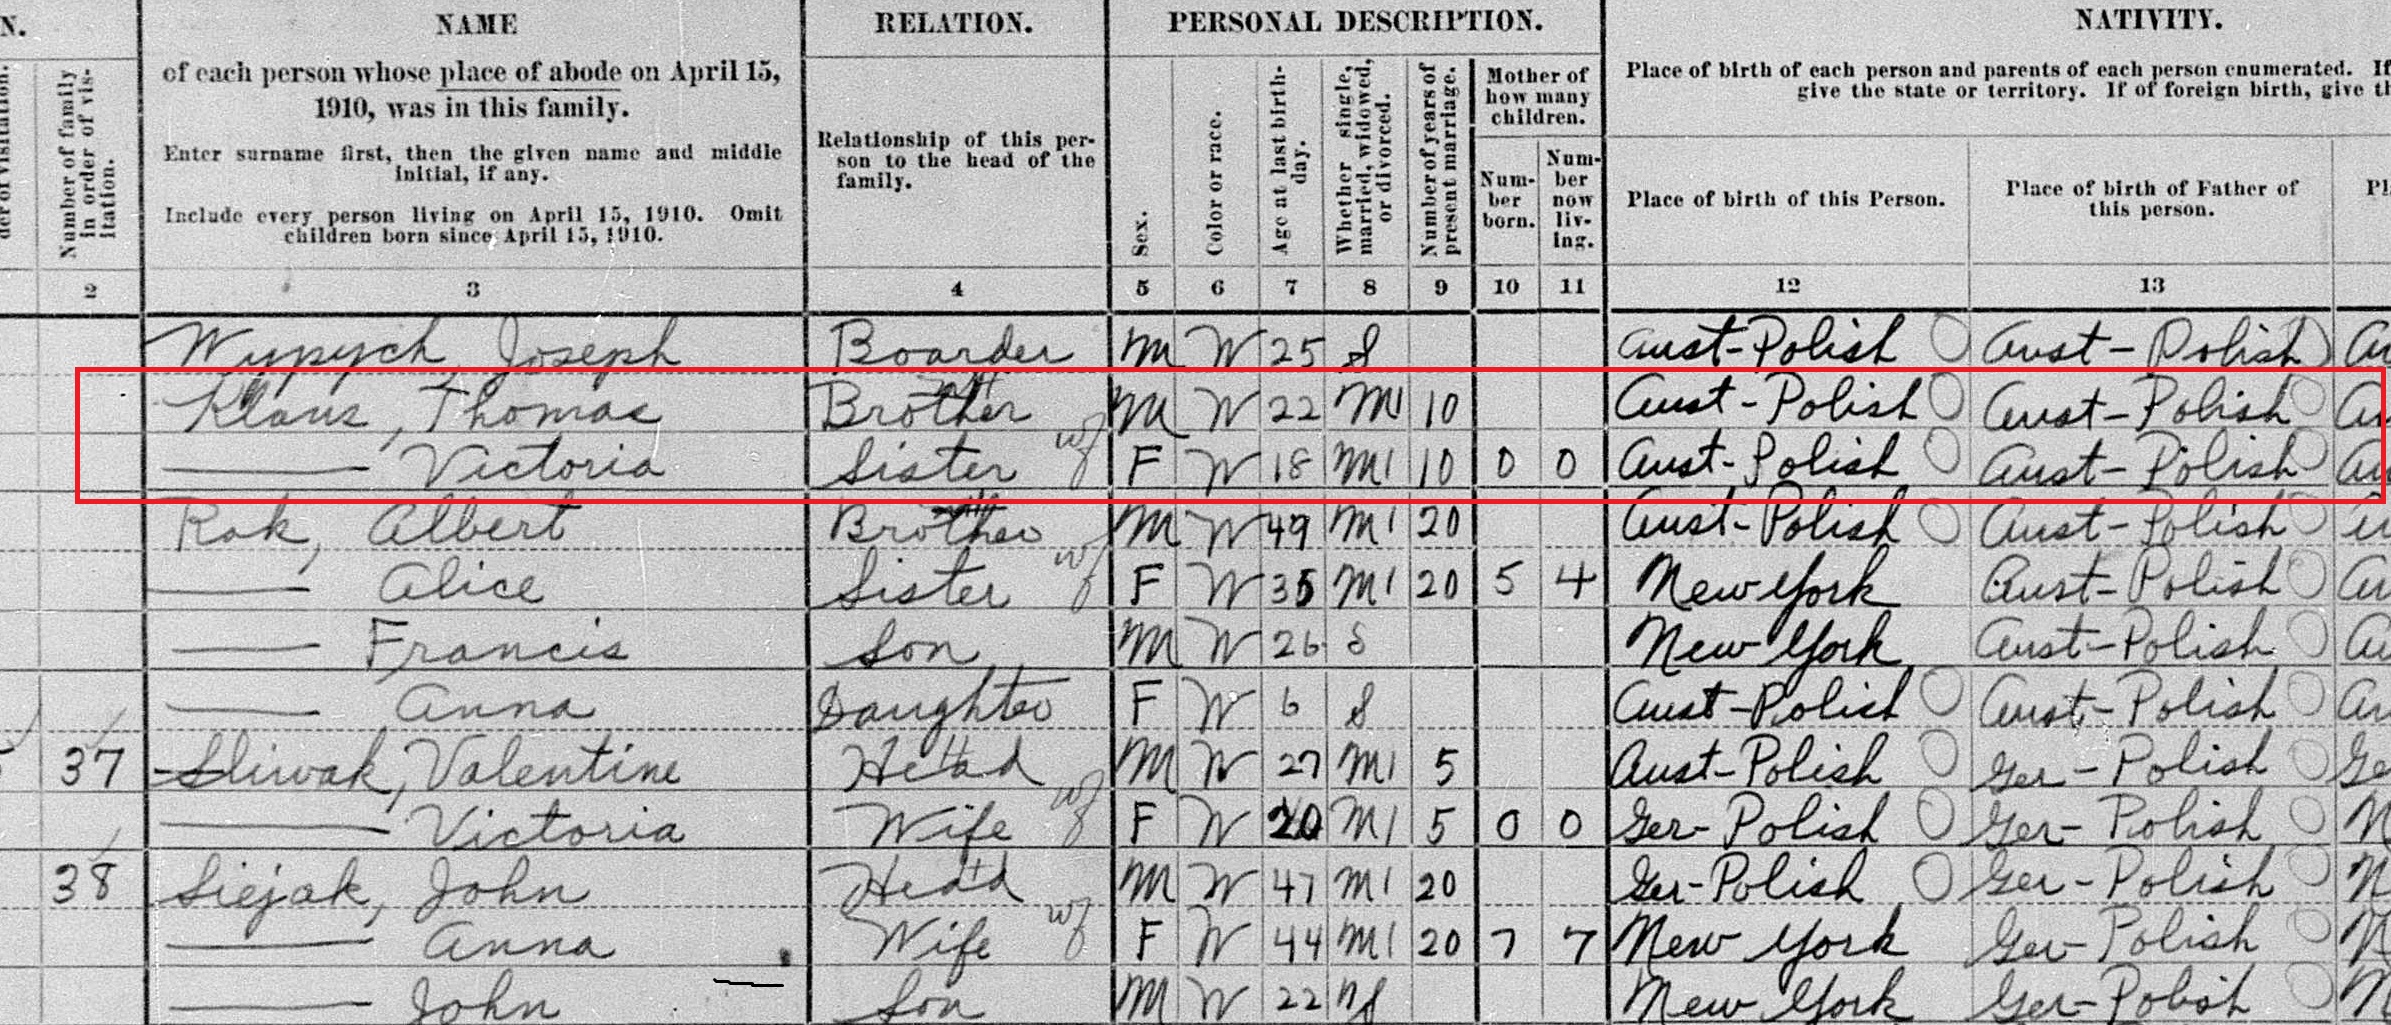 N. NAME RELATION. PERSONAL DESCRIPTION. NATIVITY.
der of visitation.
Number of family in order of vis-
itation.
of each person whose place of abode on April 15,
1910, was in this family.
Enter surname first, then the given name and middle
initial, if any.
Include every person living on April 15, 1910. Omit
children born since April 15, 1910.
Relationship of this per-
son to the head of the
family.
Sex.
Color or race.
Age at last birth-
day.
Whether single,
married, widowed,
or divorced.
Number of years of
present marriage.
Mother of
how many
children.
Num-
ber
born.
Num-
ber
now
liv-
ing.
Place of birth of each person and parents of each person enumerated. If
give the state or territory. If of foreign birth, give th
Place of birth of this Person.
Place of birth of Father of
this person.
Pl
2 3 4 5 6 7 8 9 10 11 12 13
Wypych, Joseph Boarder M W 25 S Aust-Polish Aust-Polish Au
Klaus, Thomas Brother M W 22 M1 10 Aust-Polish Aust-Polish Au
Victoria Sister wf F W 18 M1 10 0 0 Aust-Polish Aust-Polish Au
Rok, Albert Brother M W 49 M1 20 Aust-Polish Aust-Polish
Alice Sister wf F W 35 M1 20 5 4 New York Aust-Polish Au
Francis Son M W 26 S New York Aust-Polish Au
Anna Daughter F W 6 S Aust-Polish Aust-Polish Au
37 Sliwak, Valentine Head M W 27 M1 5 Aust-Polish Ger-Polish Ge
Victoria Wife wf F W 20 M1 5 0 0 Ger-Polish Ger-Polish N
38 Siejak, John Head M W 47 M1 20 Ger-Polish Ger-Polish N
Anna Wife wf F W 44 M1 20 7 7 New York Ger-Polish N
John Son M W 22 New York Ger-Polish N